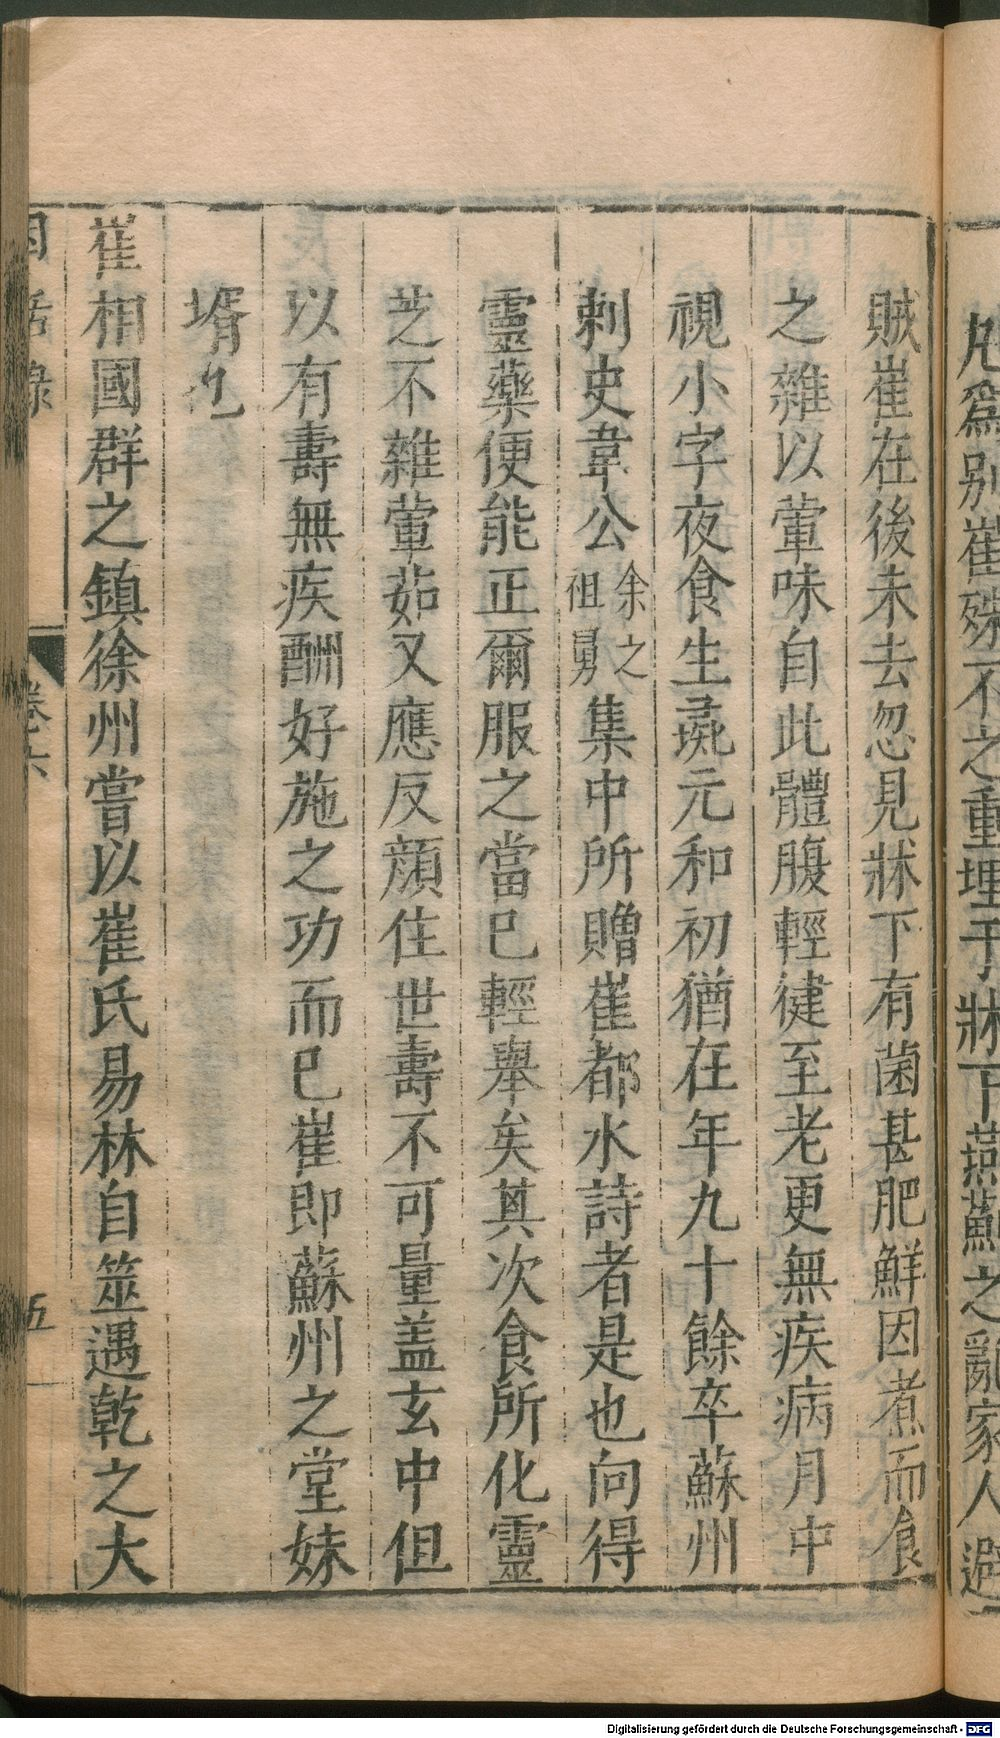 凡爲別崔殊不之重埋于牀下燕薊之亂家人避
賊崔在後未去忽見牀下有菌甚肥鮮因煮而食
之雜以葷味自此體腹輕健至老更無疾病月中
視小字夜食生彘元和初猶在年九十餘卒蘇州
刺史韋公余之祖舅集中所贈崔都水詩者是也向得
靈藥便能正爾服之當巳輕舉矣其次食所化靈
芝不雜葷茹又應反顔住世壽不可量盖玄中但
以有壽無疾酬好施之功而巳崔即蘇州之堂妹
壻也
崔相國群之鎮徐州嘗以崔氏易林自筮遇乾之大
因話錄
卷六
五
Digitalisierung gefördert durch die Deutsche Forschungsgemeinschaft - DFG